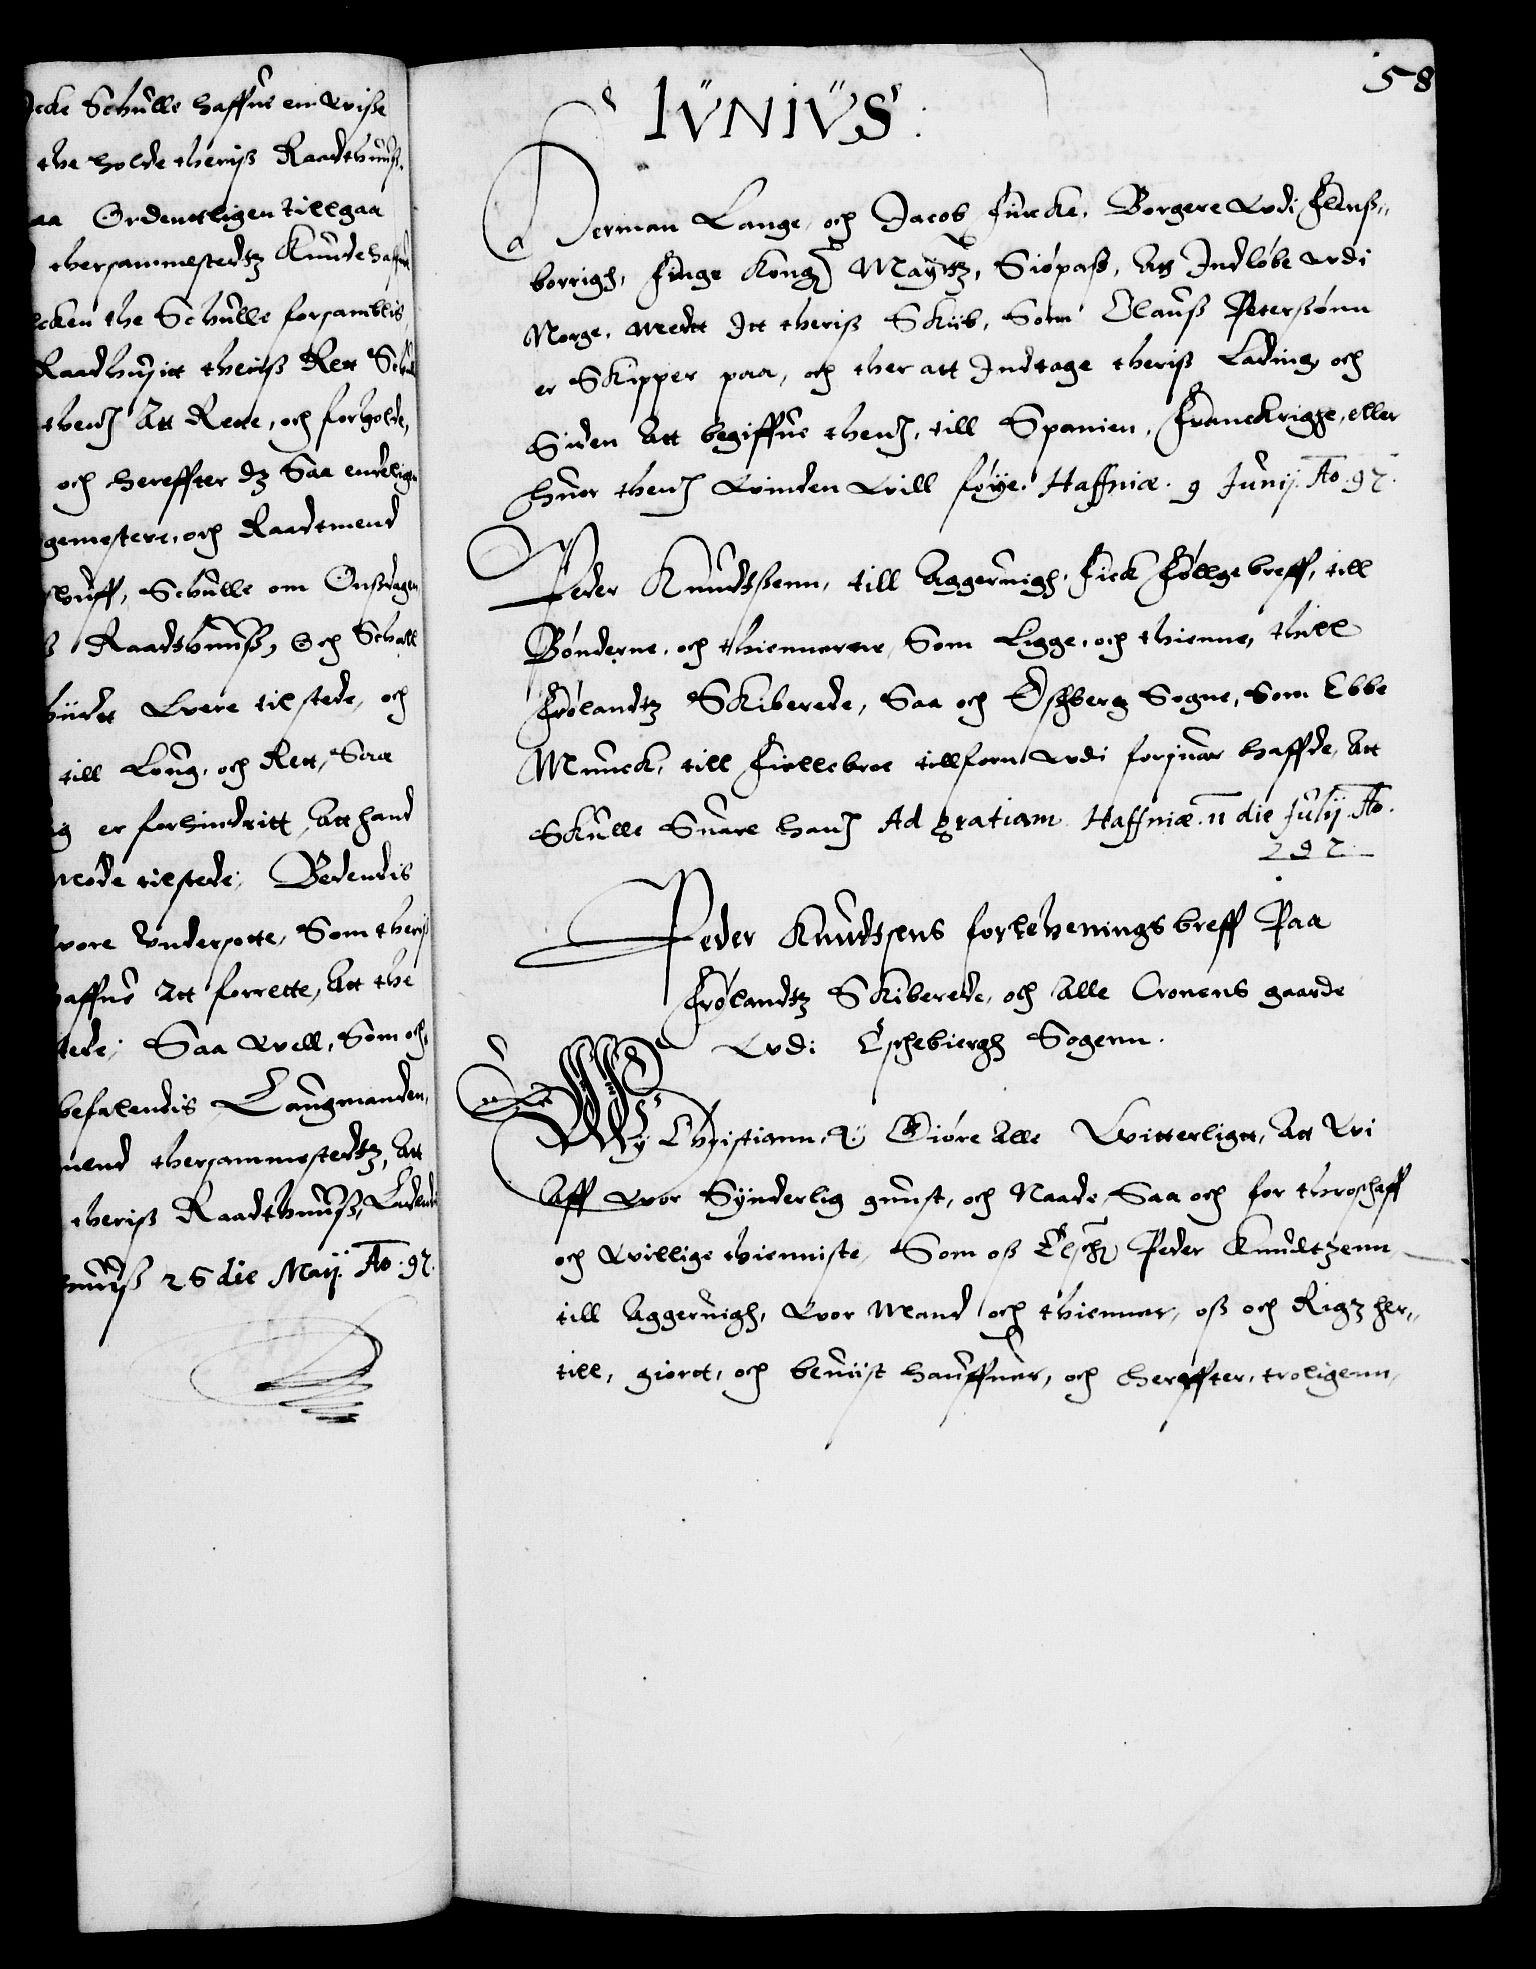 ecke Schulle haffue en Wisse
the holde theriss Raadthuuss.
aa Ordenttligen tillgaa
thersammestedtz Knudehaffuel
lcken the Schulle forsamblis
Raadhusitt theriss Rett Schul
thend Att Rette, och forholde,
och hereffter dz Saa endelige
gemestere, och Raadtmend
Schulle om Onssdagen
ss Raadthuuss, Och Schall
Were tilstede, och
till Loug, och Rett, Saa
ig er forhindritt, Att hand
møde tilstede, Bedendis
wore Undersotte, Som theriss
haffue Att forrette, Att the
stede, Saa Well, Som och
befalendis Laugmanden,
mend thersammestedtz, Att
theriss Raadthuuss, Ladendis
huuss 26 die Maij. Ao. 97.
58
IVNIVS.
Herman Lange, och Jacob Fincke, Borgere Wdi Flenss„
borrigh, Finge Kong: Maytz, Siøpass, Att Indløbe wdi
Norge, medt Itt theriss Skiib, Som Clauss Peterssønn
er Skipper paa, och ther att Indtage theriss Lading, och
Siden Att begiffue thend, till Spanien, Franckrigge, eller
huor thend Winden Will føye. Haffniæ. 9 Junij. Ao. 97.
Peder Knudtssenn, till Aggeruigh, Fick Føllgebreff, till
Bønderne, och thiennerne, Som Ligge, och thienne, thill
Frølandtz Skiberede, Saa och Eschberg Sogne, Som Ebbe
Munck, till Fiellebroe tillforn Wdi forsuar haffde, Att
Skulle Suare hand Ad gratiam. Haffniæ. 11 die Julij. Ao.
297.
Peder Knudtsens forlehenings breff Paa
Frølandtz Skiberede, och Alle Cronens gaarde
Wdi Eschebiergh Sogenn.
Wy Christiann, 4. Giøre Alle Witterligtt, Att Wi
Aff Wor Synderlig gunst, och Naade, Saa och for throschaff
och Willige thienniste, Som oss Elsch: Peder Knudtzenn
till Aggeruigh, Wor Mand och thienner, oss och Rigz her„
till, giortt, och beuiist hauffuer, och hereffter, troligenn,